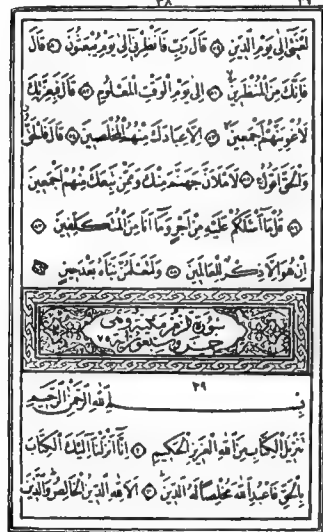 ٣٨
لعنتى الى يوم الدين ٧٨ قال رب فانظرنى الى يوم يبعثون ٧٩ قال
فانك من المنظرين ٨٠ الى يوم الوقت المعلوم ٨١ قال فبعزتك
لاغوينهم اجمعين ٨٢ الا عبادك منهم المخلصين ٨٣ قال فالحق
والحق اقول ٨٤ لاملان جهنم منك وممن تبعك منهم اجمعين
٨٥ قل ما اسئلكم عليه من اجر وما انا من المتكلفين ٨٦
ان هو الا ذكر للعالمين ٨٧ ولتعلمن نباه بعد حين ٨٨
سورة الزمر مكية وهى
خمس وسبعون اية ٧٥
٣٩
بسم الله الرحمن الرحيم
تنزيل الكتاب من الله العزيز الحكيم ١ انا انزلنا اليك الكتاب
بالحق فاعبد الله مخلصا له الدين ٢ الا لله الدين الخالص والذين